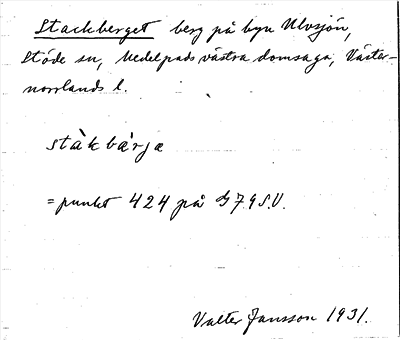 Stackberget berg på byn Ulvsjön,
Stöde sn, Medelpads västra domsaga, Väster-
norrlands l.
stàkbàrjæ
=punkt 424 på G79S.V.
Valter Jansson 1931.